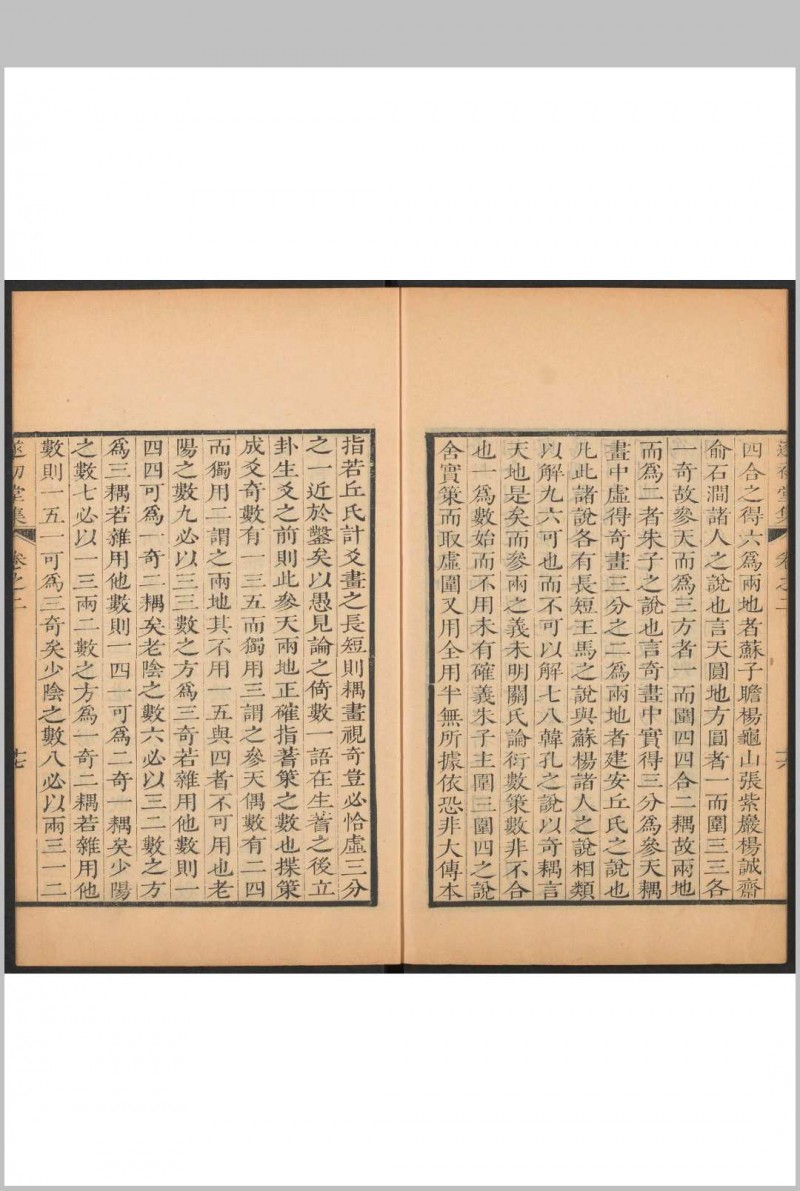 四合之得六爲兩地者蘇子瞻楊龜山張紫巖楊誠齋
俞石澗諸人之說也言天圓地方圓者一而圍三三各
一奇故參天而爲三方者一而圍四四合二耦故兩地
而爲二者朱子之說也言奇畫中實得三分爲參天耦
畫中虛得奇畫三分之二爲兩地者建安丘氏之說也
凡此諸說各有長短王馬之說與蘇楊諸人之說相類
以解九六可也而不可以解七八韓孔之說以奇耦言
天地是矣而參兩之義未明關氏論衍數策數非不合
也一爲數始而不用未有確義朱子主圍三圍四之說
舍實策而取虛圍又用全用半無所據依恐非大傳本
遂初堂集
卷之二
指若丘氏計爻畫之長短則耦畫視奇豈必恰虛三分
之一近於鑿矣以愚見論之倚數一語在生蓍之後立
卦生爻之前則此參天兩地正確指蓍策之數也揲策
成爻奇數有一三五而獨用三謂之參天偶數有二四
而獨用二謂之兩地其不用一五與四者不可用也老
陽之數九必以三三數之方爲三奇若雜用他數則一
四四可爲一奇二耦矣老陰之數六必以三二數之方
爲三耦若雜用他數則一四一可爲二奇一耦矣少陽
之數七必以一三兩二數之方爲一奇二耦若雜用他
數則一五一可爲三奇矣少陰之數八必以兩三一二
遂初堂集
卷之二